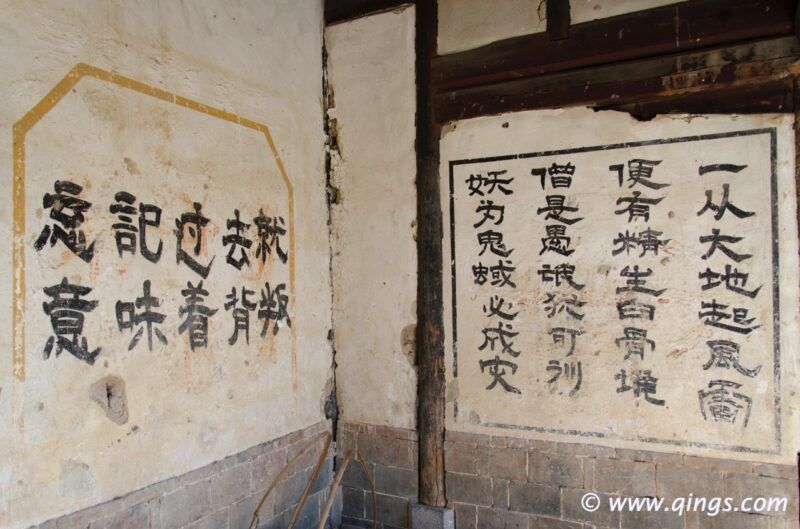 忘記过去就
意味着背叛
一从大地起風雷
便有精生白骨堆
僧是愚氓犹可训
妖为鬼蜮必成灾
© www.qings.com